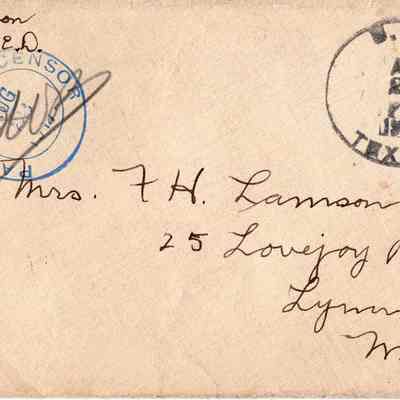 on
E.D.
CENSOR
PA
TEX
Mrs. F H. Lamson
25 Lovejoy
Lynn